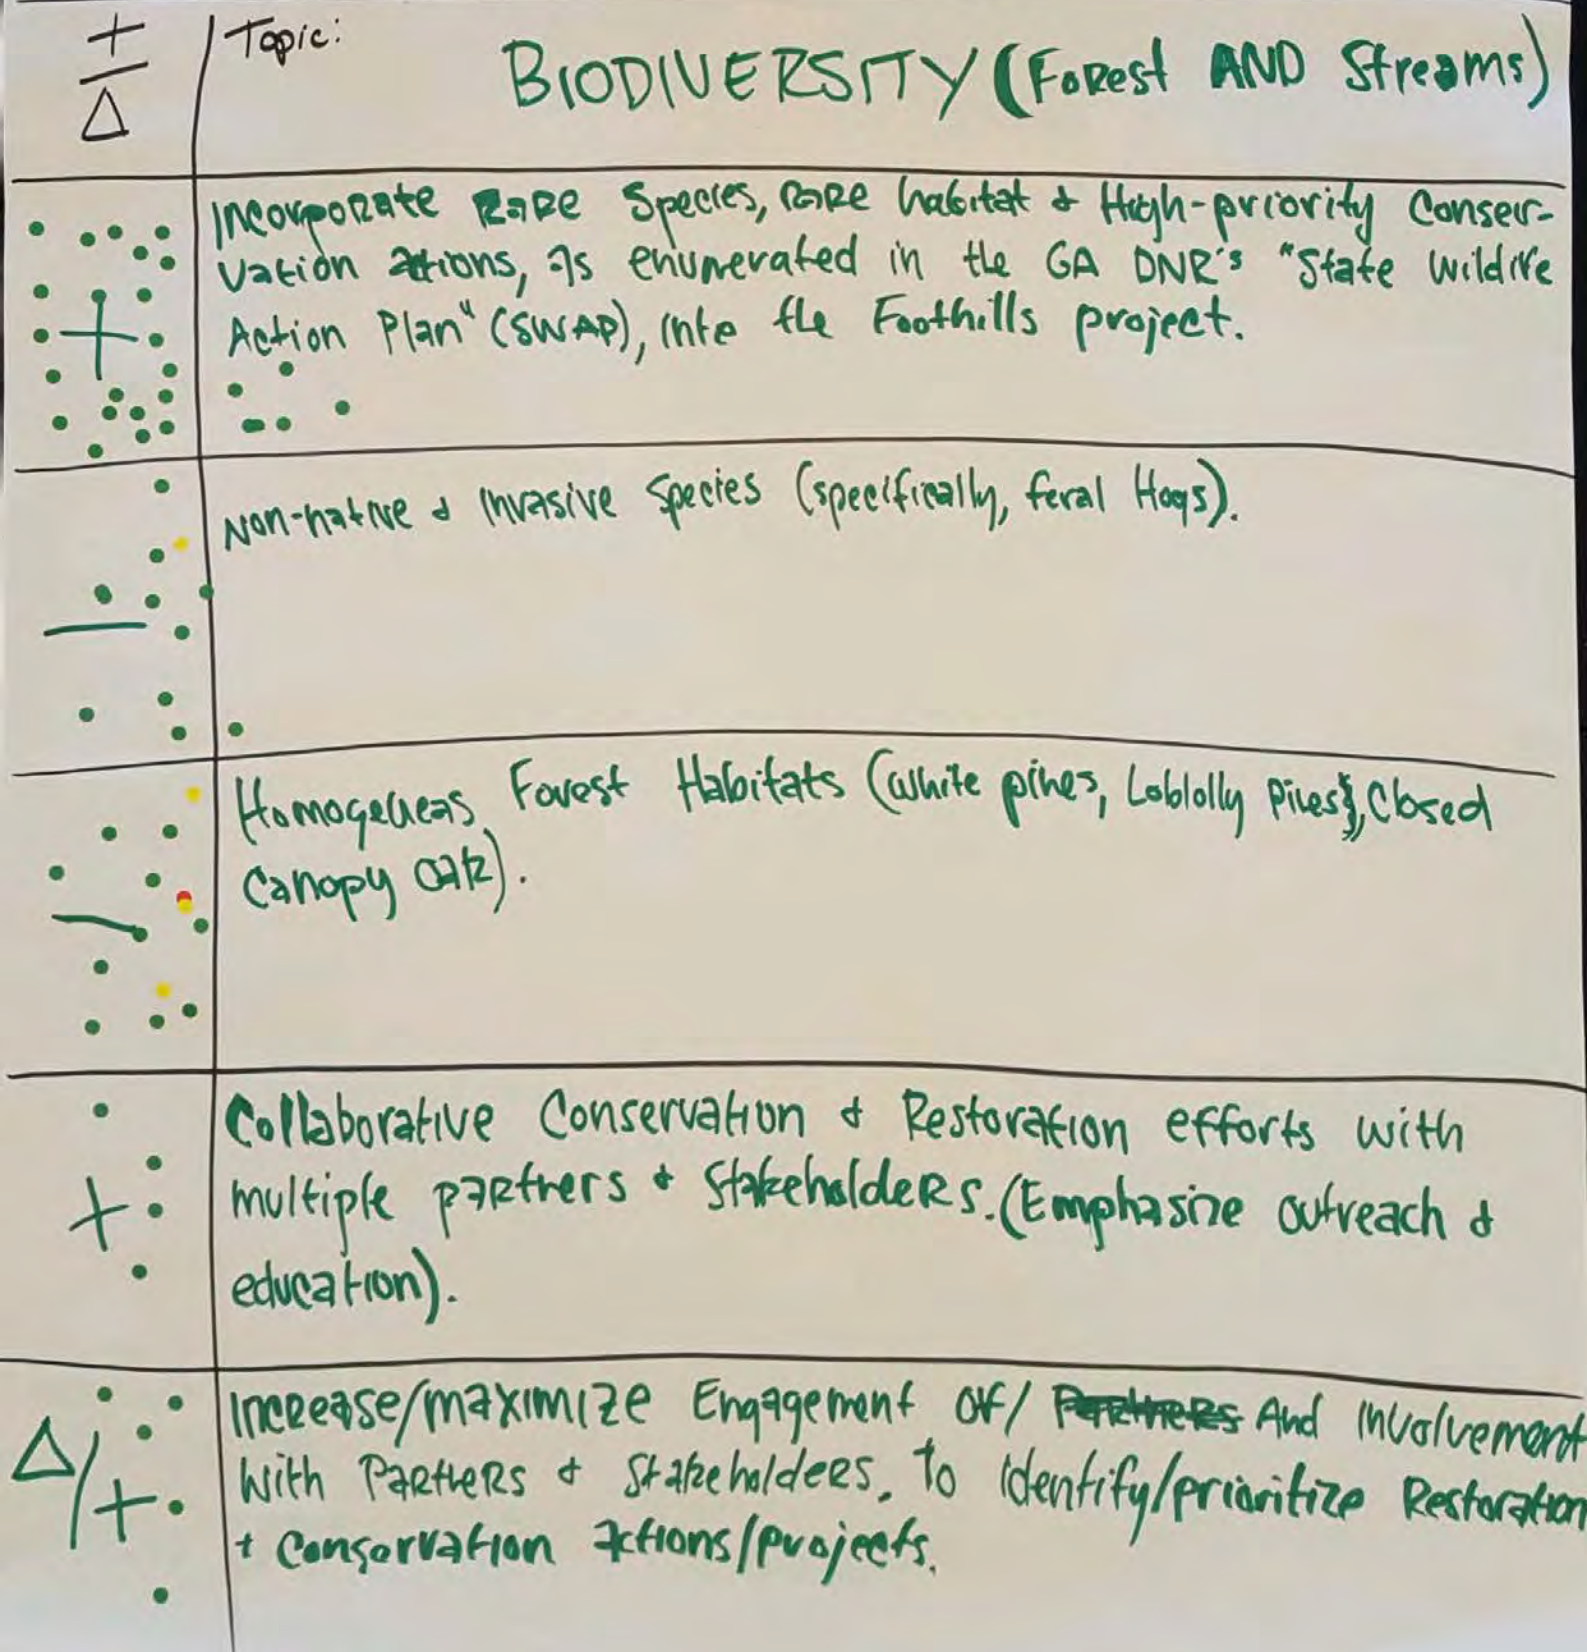 +
—
Δ
Topic:
BIODIVERSITY (Forest AND Streams)
+
Incorporate Rare Species, rare habitat & High-priority Conser-
vation actions, as enumerated in the GA DNR's "State Wildlife
Action Plan" (SWAP), into the Foothills project.
—
Non-native & Invasive Species (specifically, feral Hogs).
—
Homogeneas Forest Habitats (white pines, Loblolly Pines), Closed
Canopy oak).
+
Collaborative Conservation & Restoration efforts with
multiple partners & Stakeholders. (Emphasize outreach &
education).
Δ/+
Increase/maximize Engagement of/ Partners And Involvement
with Partners & Stakeholders, to identify/prioritize Restoration
+ Conservation actions/projects.